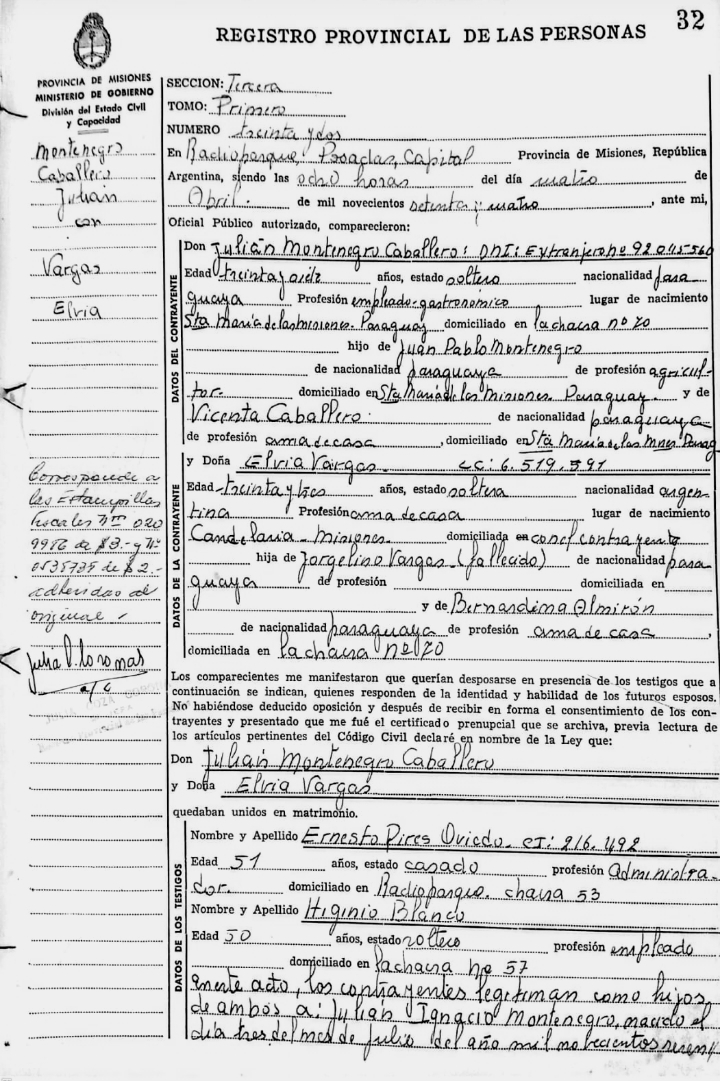 32
REGISTRO PROVINCIAL DE LAS PERSONAS
PROVINCIA DE MISIONES
MINISTERIO DE GOBIERNO
División del Estado Civil
y Capacidad
Montenegro
Caballero
Julián
con
Vargas
Elvia
Corresponde a
las Estampillas
fiscales Nros 020
9986 de $3.- y Nº
0535735 de $2.-
adheridas al
original
a/c
SECCION: Tercera
TOMO: Primero
NUMERO treinta y dos
En Radioparque: Posadas, Capital Provincia de Misiones, República
Argentina, siendo las ocho horas del día cuatro de
Abril. de mil novecientos setenta y cuatro, ante mi,
Oficial Público autorizado, comparecieron:
DATOS DEL CONTRAYENTE
Don Julián Montenegro Caballero: DNI: Extranjero nº 92.045.560
Edad treinta y siete años, estado soltero nacionalidad para
guaya Profesión empleado-gastronomico lugar de nacimiento
Sta María de las misiones. Paraguay domiciliado en la chacra nº 70
hijo de Juan Pablo Montenegro
de nacionalidad paraguaya de profesión agricul-
tor. domiciliado en Sta María de las Misiones. Paraguay. y de
Vicenta Caballero. de nacionalidad paraguaya
de profesión ama de casa, domiciliado en Sta María de las Mnes. Parag
DATOS DE LA CONTRAYENTE
y Doña Elvia Vargas. CC: 6.519.591
Edad treinta y tres años, estado soltera nacionalidad argen
tina Profesión ama de casa lugar de nacimiento
Candelaria - Misiones. domiciliada en con el contrayente
hija de Jorgelino Vargas (fallecido) de nacionalidad para
guaya de profesión domiciliada en
y de Bernardina Almirón
de nacionalidad paraguaya de profesión ama de casa,
domiciliada en la chacra Nº 70
Los comparecientes me manifestaron que querían desposarse en presencia de los testigos que a
continuación se indican, quienes responden de la identidad y habilidad de los futuros esposos.
No habiéndose deducido oposición y después de recibir en forma el consentimiento de los con-
trayentes y presentado que me fué el certificado prenupcial que se archiva, previa lectura de
los artículos pertinentes del Código Civil declaré en nombre de la Ley que:
Don Julián Montenegro Caballero
y Doña Elvia Vargas
quedaban unidos en matrimonio.
DATOS DE LOS TESTIGOS
Nombre y Apellido Ernesto Pires Oviedo. CI: 216.492
Edad 51 años, estado casado profesión Administra-
dor. domiciliado en Radioparque. chacra 53
Nombre y Apellido Higinio Blanco
Edad 50 años, estado soltero profesión empleado
domiciliado en la chacra no 57
En este acto, los contrayentes legitiman como hijos
de ambos a: Julián Ignacio Montenegro, nacido el
día tres del mes de julio del año mil novecientos